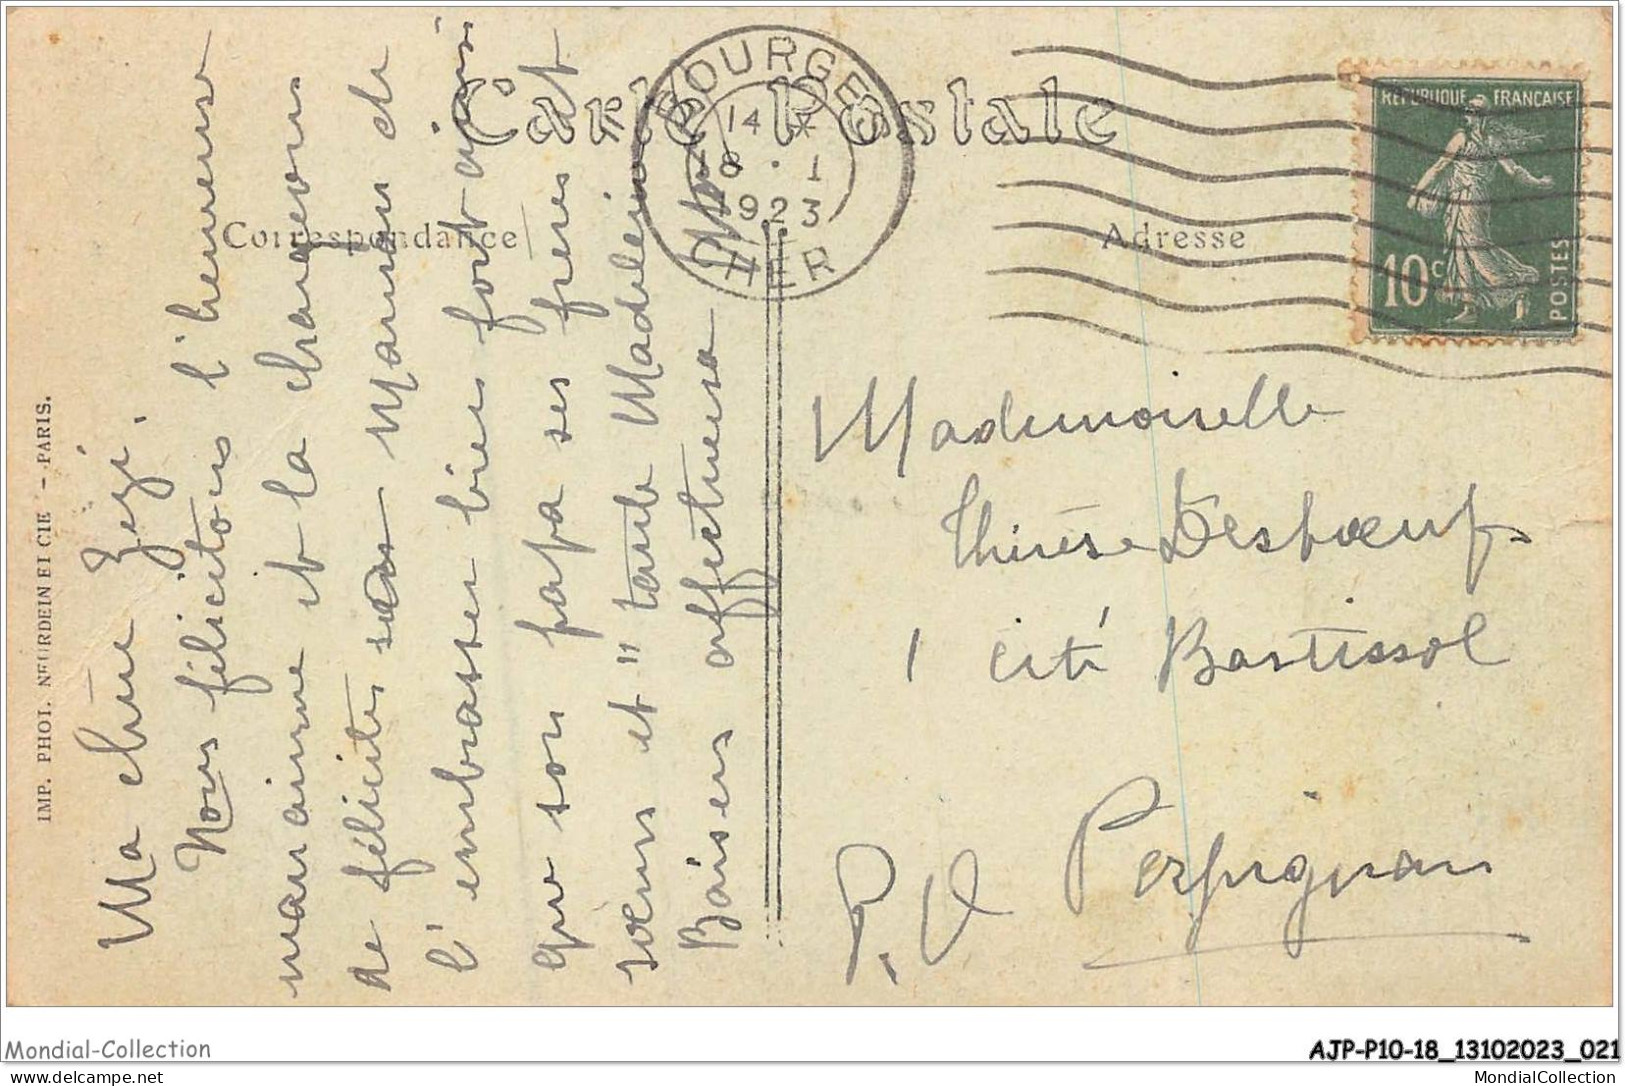 Carte Postale
Correspondance
Adresse
BOURGES
14 *
8 · 1
1923
CHER
REPUBLIQUE FRANÇAISE
10 c
POSTES
IMP. PHOT. NEURDEIN ET CIE - PARIS.
Ma chère Zézé.
Nous félicitons l'heureuse
marraine et la chargeons
de féliciter sa Maman de
l'embrasser bien fort ainsi
que son papa ses frères et
sœurs et "tante Madeleine
Baisers affectueux
Mademoiselle
Thérèse Desbœufs
1 cité Bartissol
Perpignan
P. O
Mondial-Collection
AJP-P10-18_13102023_021
www.delcampe.net
MondialCollection